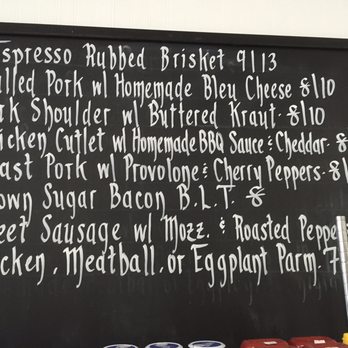 Espresso Rubbed Brisket 9/13
ulled Pork w/ Homemade Bleu Cheese 8/10
rk Shoulder w/ Buttered Kraut 8/10
icken Cutlet w/ Homemade BBQ Sauce & Cheddar 8/
ast Pork w/ Provolone & Cherry Peppers 8/
own Sugar Bacon B.L.T. 8
eet Sausage w/ Mozz. & Roasted Peppe
icken, Meatball, or Eggplant Parm. 7